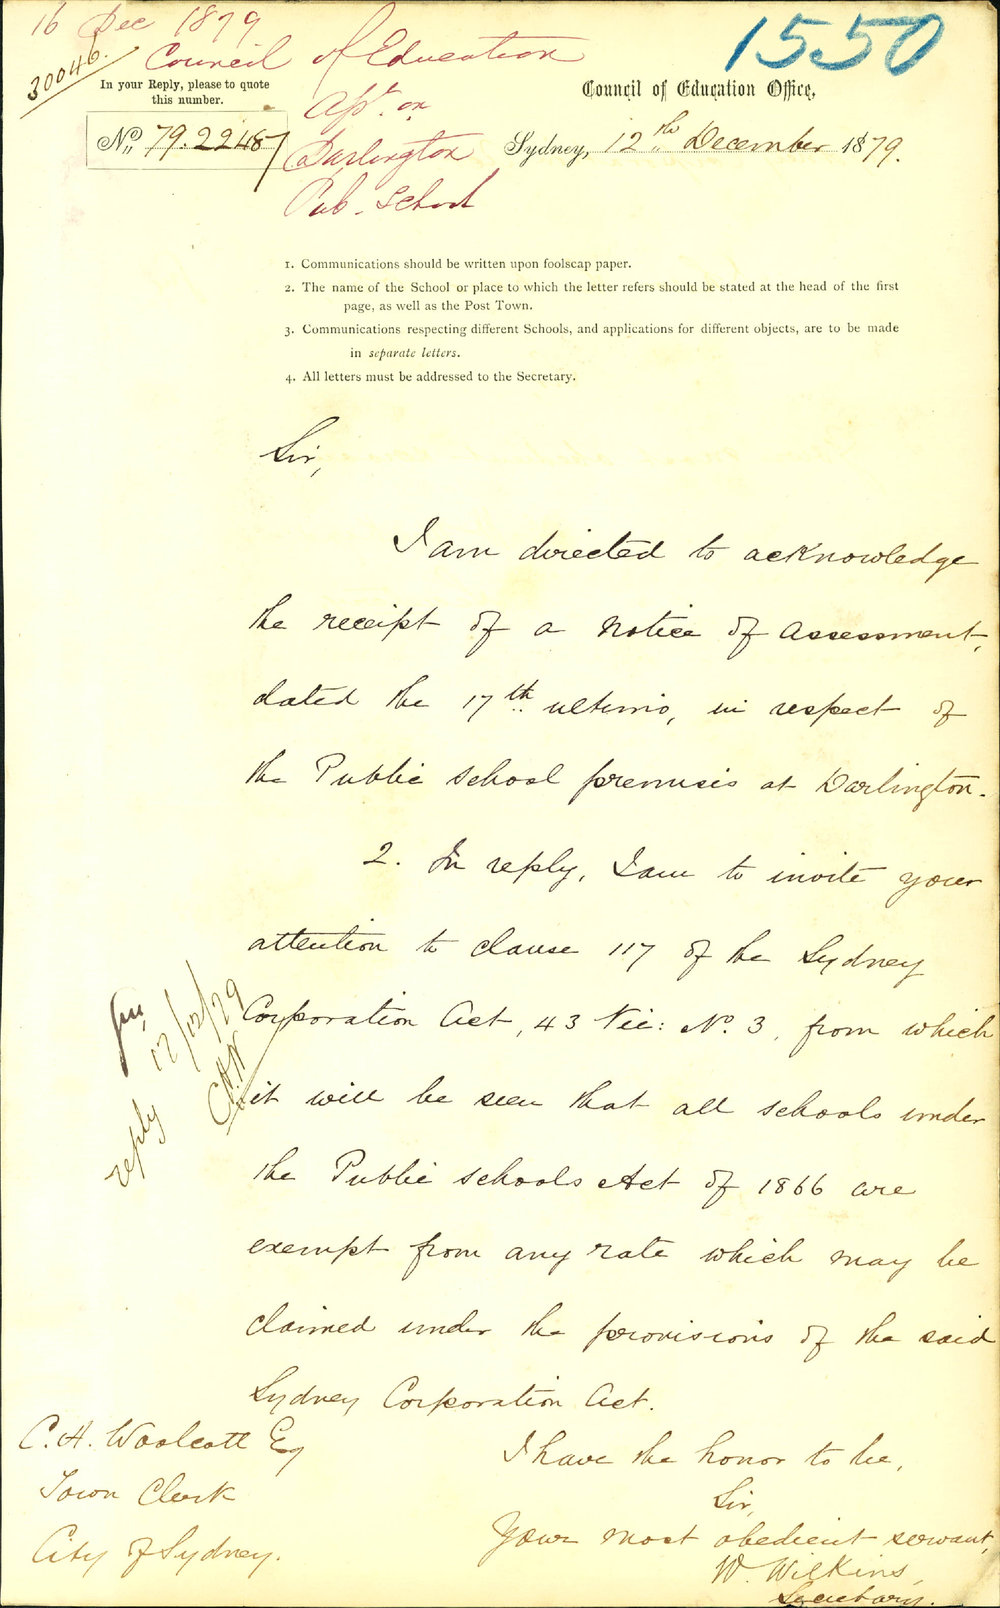 16 Dec 1879
1550
30046.
Council of Education
In your Reply, please to quote
this number.
Council of Education Office,
No. 79.22487
Asst. on
Darlington
Pub. School
Sydney, 12th December 1879.
1. Communications should be written upon foolscap paper.
2. The name of the School or place to which the letter refers should be stated at the head of the first
page, as well as the Post Town.
3. Communications respecting different Schools, and applications for different objects, are to be made
in separate letters.
4. All letters must be addressed to the Secretary.
Sir,
I am directed to acknowledge
the receipt of a Notice of Assessment,
dated the 17th ultimo, in respect of
the Public School premises at Darlington.
2. In reply, I am to invite your
attention to clause 117 of the Sydney
Corporation Act, 43 Vic: No. 3, from which
it will be seen that all schools under
the Public Schools Act of 1866 are
exempt from any rate which may be
claimed under the provisions of the said
Sydney Corporation Act.
reply 17/12/79
C.H.W
I have the honor to be,
Sir,
Your most obedient servant,
W. Wilkins,
Secretary.
C. H. Woolcott Esq
Town Clerk
City of Sydney.